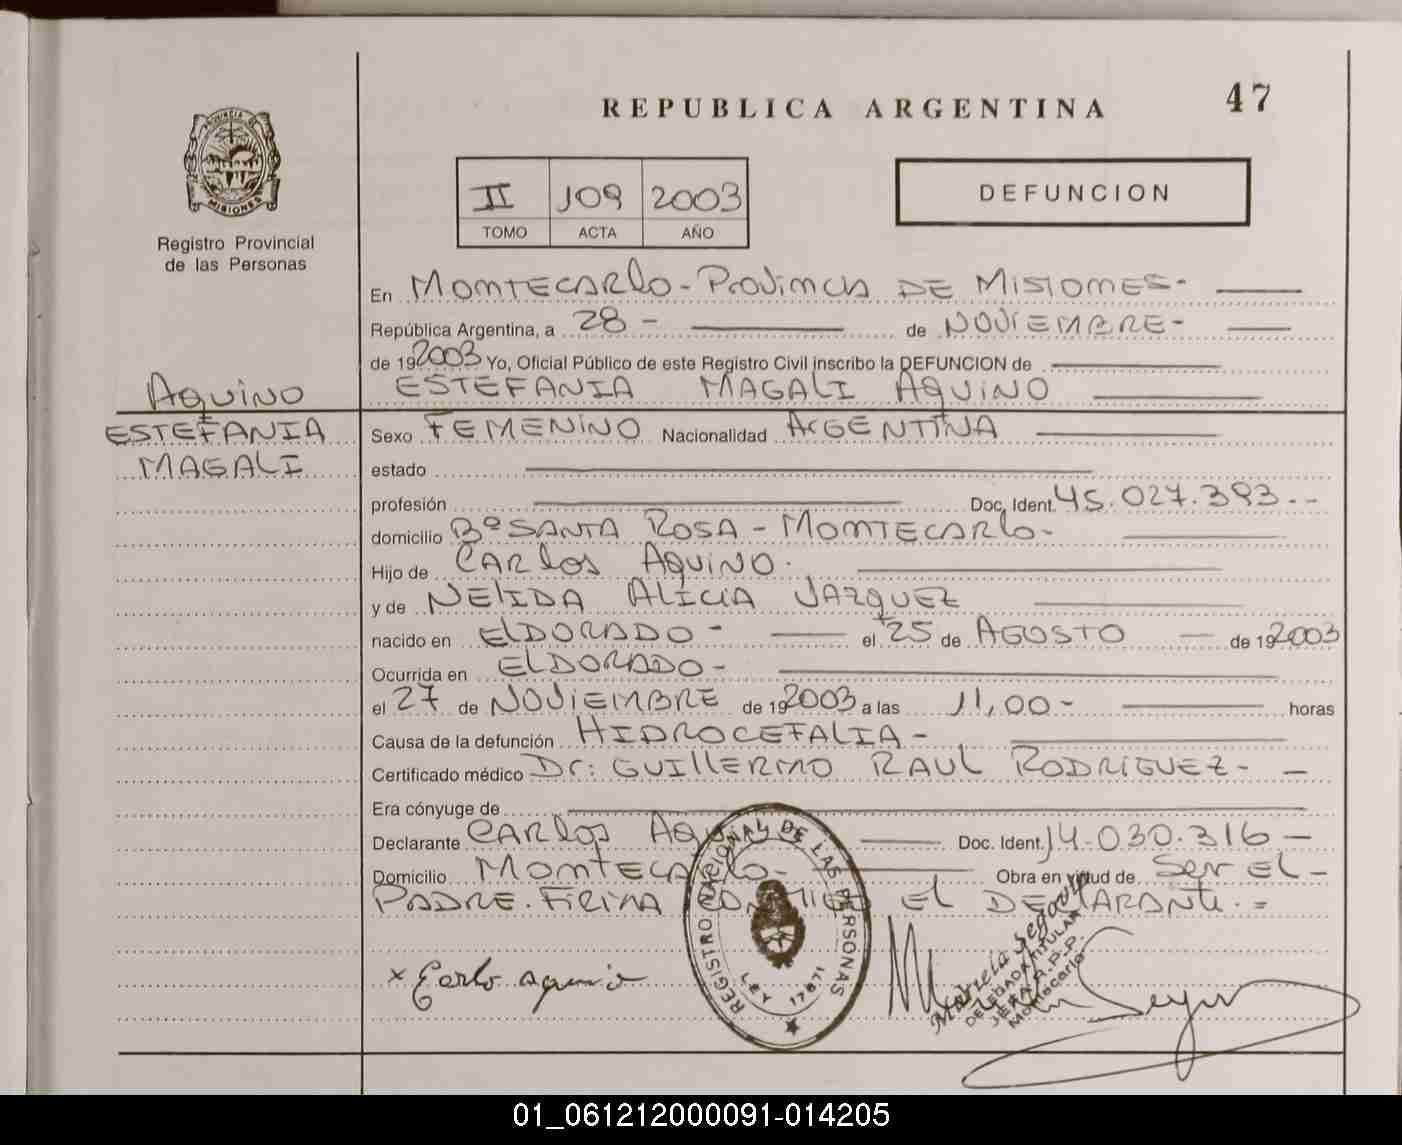 47
REPUBLICA ARGENTINA
PROVINCIA DE
MISIONES
Registro Provincial
de las Personas
II 109 2003
TOMO ACTA AÑO
DEFUNCION
En MONTECARLO - PROVINCIA DE MISIONES -
República Argentina, a 28 - de NOVIEMBRE -
de 192003 Yo, Oficial Público de este Registro Civil inscribo la DEFUNCION de
ESTEFANIA MAGALI AQUINO
AQUINO
ESTEFANIA
MAGALI
Sexo FEMENINO Nacionalidad ARGENTINA
estado
profesión Doc. Ident. 45.027.393 - -
domicilio Bº SANTA ROSA - MONTECARLO -
Hijo de CARLOS AQUINO.
y de NELIDA ALICIA VAZQUEZ
nacido en ELDORADO - el 25 de AGOSTO de 192003
Ocurrida en ELDORADO -
el 27 de NOVIEMBRE de 192003 a las 11,00 - horas
Causa de la defunción HIDROCEFALIA -
Certificado médico Dr: GUILLERMO RAUL RODRIGUEZ -
Era cónyuge de
Declarante CARLOS AQUINO Doc. Ident. 14.030.316 -
Domicilio MONTECARLO - Obra en virtud de SER EL -
PADRE. FIRMA CONMIGO EL DECLARANTE. =
REGISTRO NACIONAL DE LAS PERSONAS
LEY 17671
x Carlo Aquino
Mariela Segovia
DELEGADA TITULAR
R.P.P.
Montecarlo
01_061212000091-014205